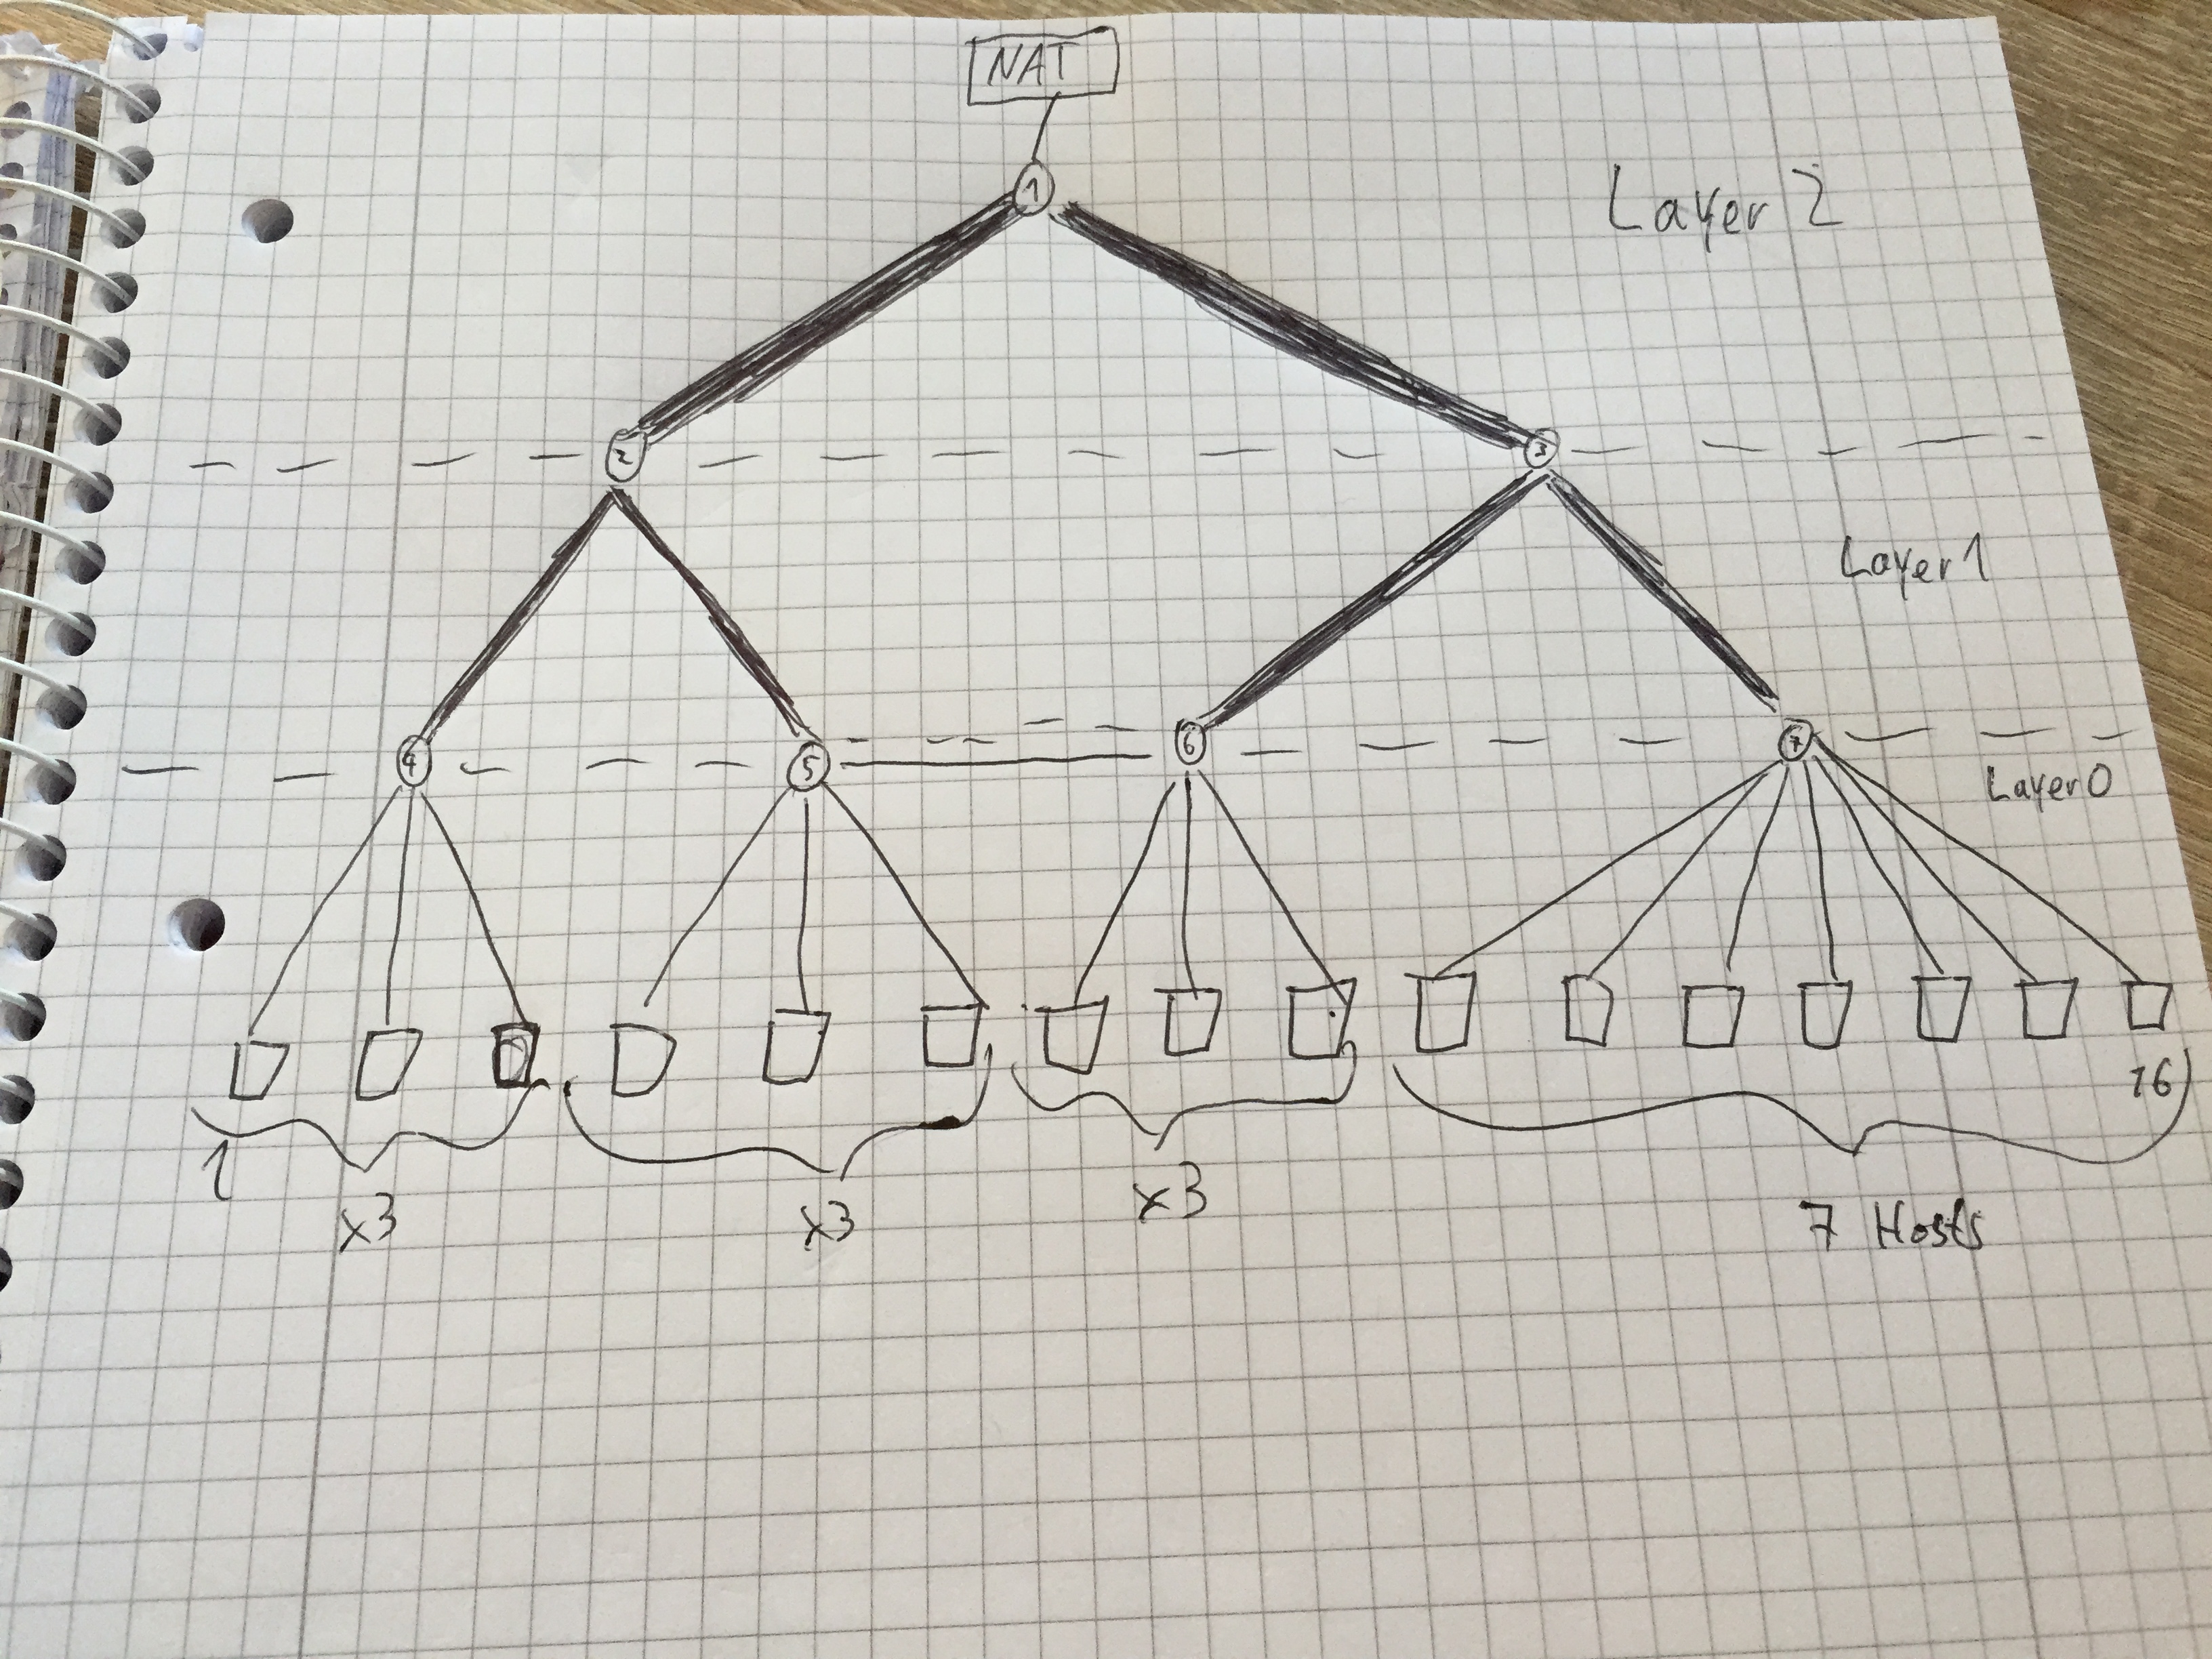 NAT
1
Layer 2
2
3
Layer 1
4
5
6
7
Layer 0
16
1
x3
x3
x3
7 Hosts